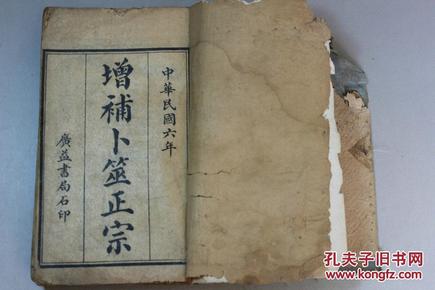 中華民國六年
增補卜筮正宗
廣益書局石印
孔夫子旧书网